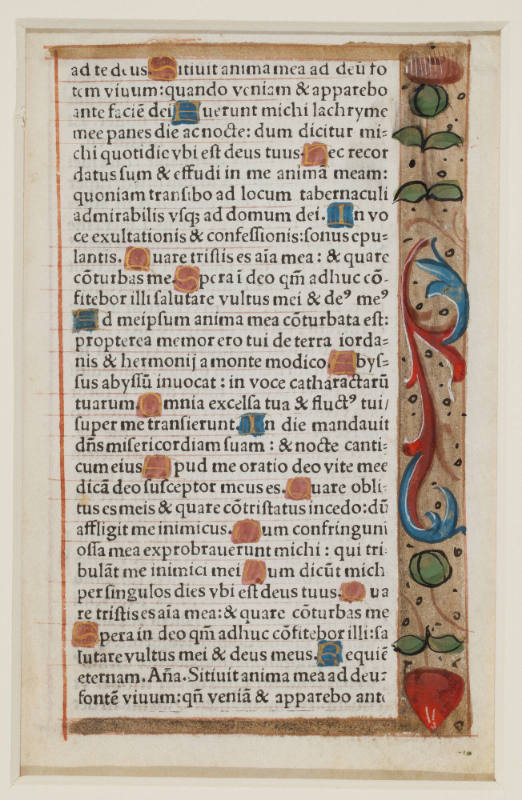 ad te deus. Sitiuit anima mea ad deū fo
tem viuum: quando veniam & apparebo
ante faciē dei Fuerunt michi lachryme
mee panes die ac nocte: dum dicitur mi-
chi quotidie vbi est deus tuus. Hec recor
datus sum & effudi in me animā meam:
quoniam transibo ad locum tabernaculi
admirabilis vsqȝ ad domum dei. In vo
ce exultationis & confessionis: sonus epu-
lantis. Quare tristis es aīa mea: & quare
cōturbas me. Spera ī deo qm̄ adhuc cō-
fitebor illi salutare vultus mei & deꝰ meꝰ
Ad meipsum anima mea cōturbata est:
propterea memor ero tui de terra iorda-
nis & hermonij a monte modico Abys-
sus abyssū inuocat: in voce catharactarū
tuarum. Omnia excelsa tua & fluctꝰ tui/
super me transierunt. In die mandauit
dn̄s misericordiam suam: & nocte canti-
cum eius Apud me oratio deo vite mee
dicā deo susceptor meus es. Quare obli-
tus es meis & quare cōtristatus incedo: dū
affligit me inimicus. Dum confringunt
ossa mea exprobrauerunt michi: qui tri-
bulāt me inimici mei Dum dicūt mich
per singulos dies vbi est deus tuus. Qua
re tristis es aīa mea: & quare cōturbas me
Spera in deo qm̄ adhuc cōfitebor illi: sa
lutare vultus mei & deus meus. Requiē
eternam. Aña. Sitiuit anima mea ad deu:
fontē viuum: qn̄ veniā & apparebo ante